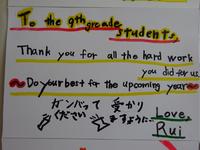 To the 9th grade
students,
Thank you for all the hard work
you did for us.
Do your best for the upcoming year
ガンバって 受かり
ください ますように
Love,
Rui